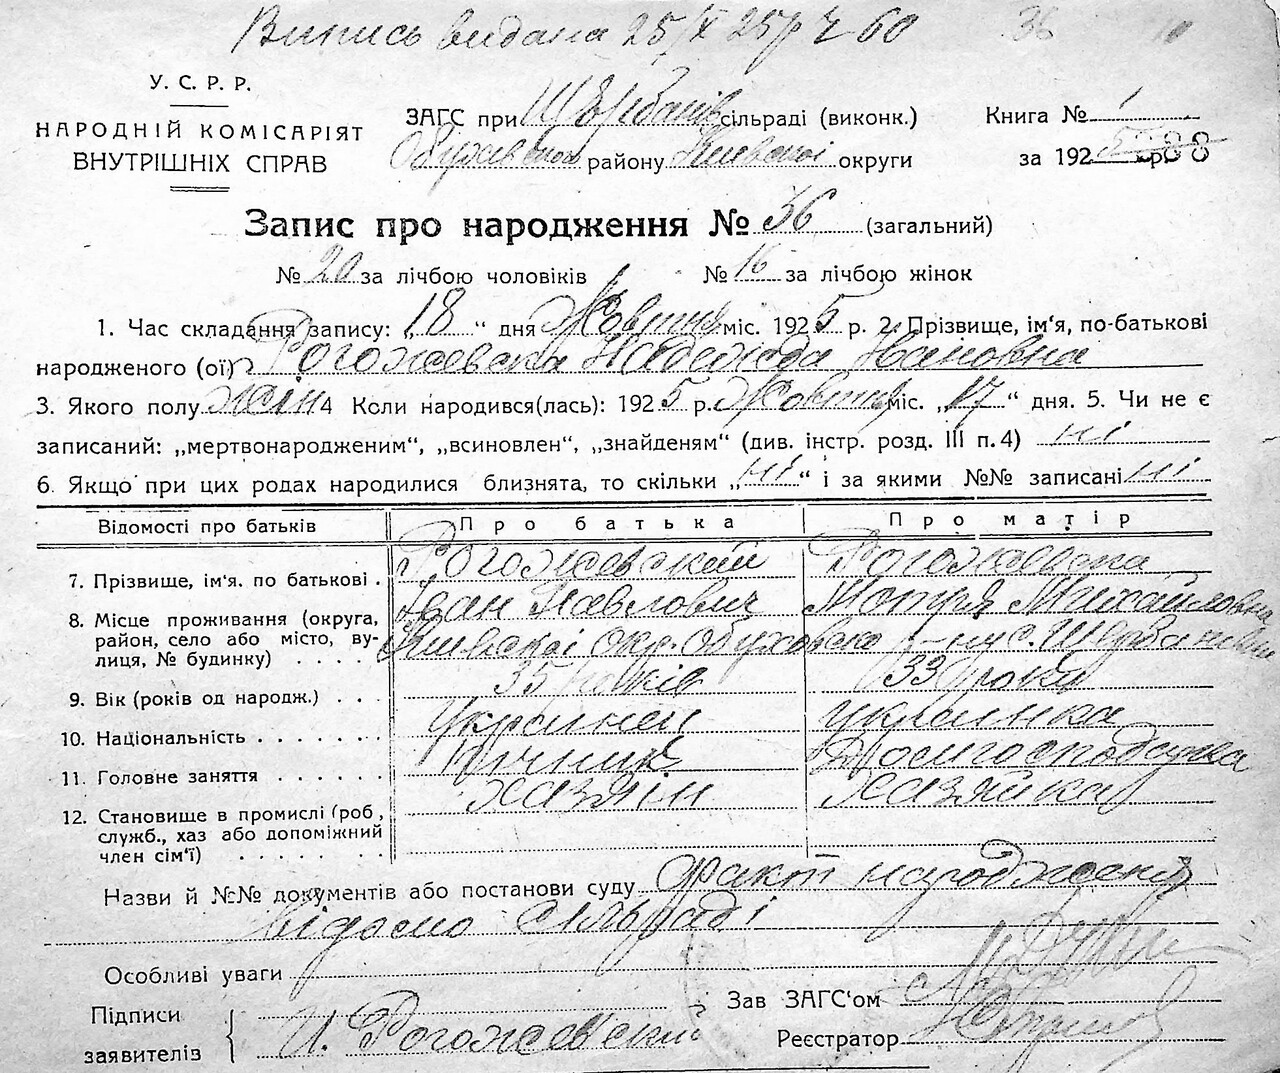 Випись видана 25/X 25 р. Ч 60 36
У. С. Р. Р.
НАРОДНІЙ КОМІСАРІЯТ
ВНУТРІШНІХ СПРАВ
ЗАГС при Щербанів сільраді (виконк.)
Обухівськ району Київської округи
Книга № 1
за 1925 р.
Запис про народження № 36 (загальний)
№ 20 за лічбою чоловіків № 16 за лічбою жінок
1. Час складання запису: „18“ дня Жовтня міс. 1925 р. 2. Прізвище, ім'я, по-батькові
народженого (ої) Рогожевска Надежда Івановна
3. Якого полу жін 4 Коли народився(лась): 1925 р. Жовтня міс. „17“ дня. 5. Чи не є
записаний: „мертвонародженим“, „всиновлен“, „знайденям“ (див. інстр. розд. III п. 4) ні
6. Якщо при цих родах народилися близнята, то скільки „ні“ і за якими №№ записані ні
Відомості про батьків Про батька Про матір
7. Прізвище, ім'я. по батькові . Рогожевский Рогожевска
Іван Павлович Мотря Михайловна
8. Місце проживання (округа,
район, село або місто, ву-
лиця, № будинку) . . . . Київскої окр. Обуховско с.
9. Вік (років од народж.) . . . 35 років 33 роки
10. Національність . . . . . . . Украинец украинка
11. Головне заняття . . . . . . Пічник Домгосподарка
12. Становище в промислі (роб., хазяїн хазяйка
служб., хаз або допоміжний
член сім'ї) . . . . . . .
Назви й №№ документів або постанови суду факт народження
відомо сільраді
Особливі уваги
Підписи
заявителів И. Рогожевский
Зав ЗАГС'ом
Реєстратор